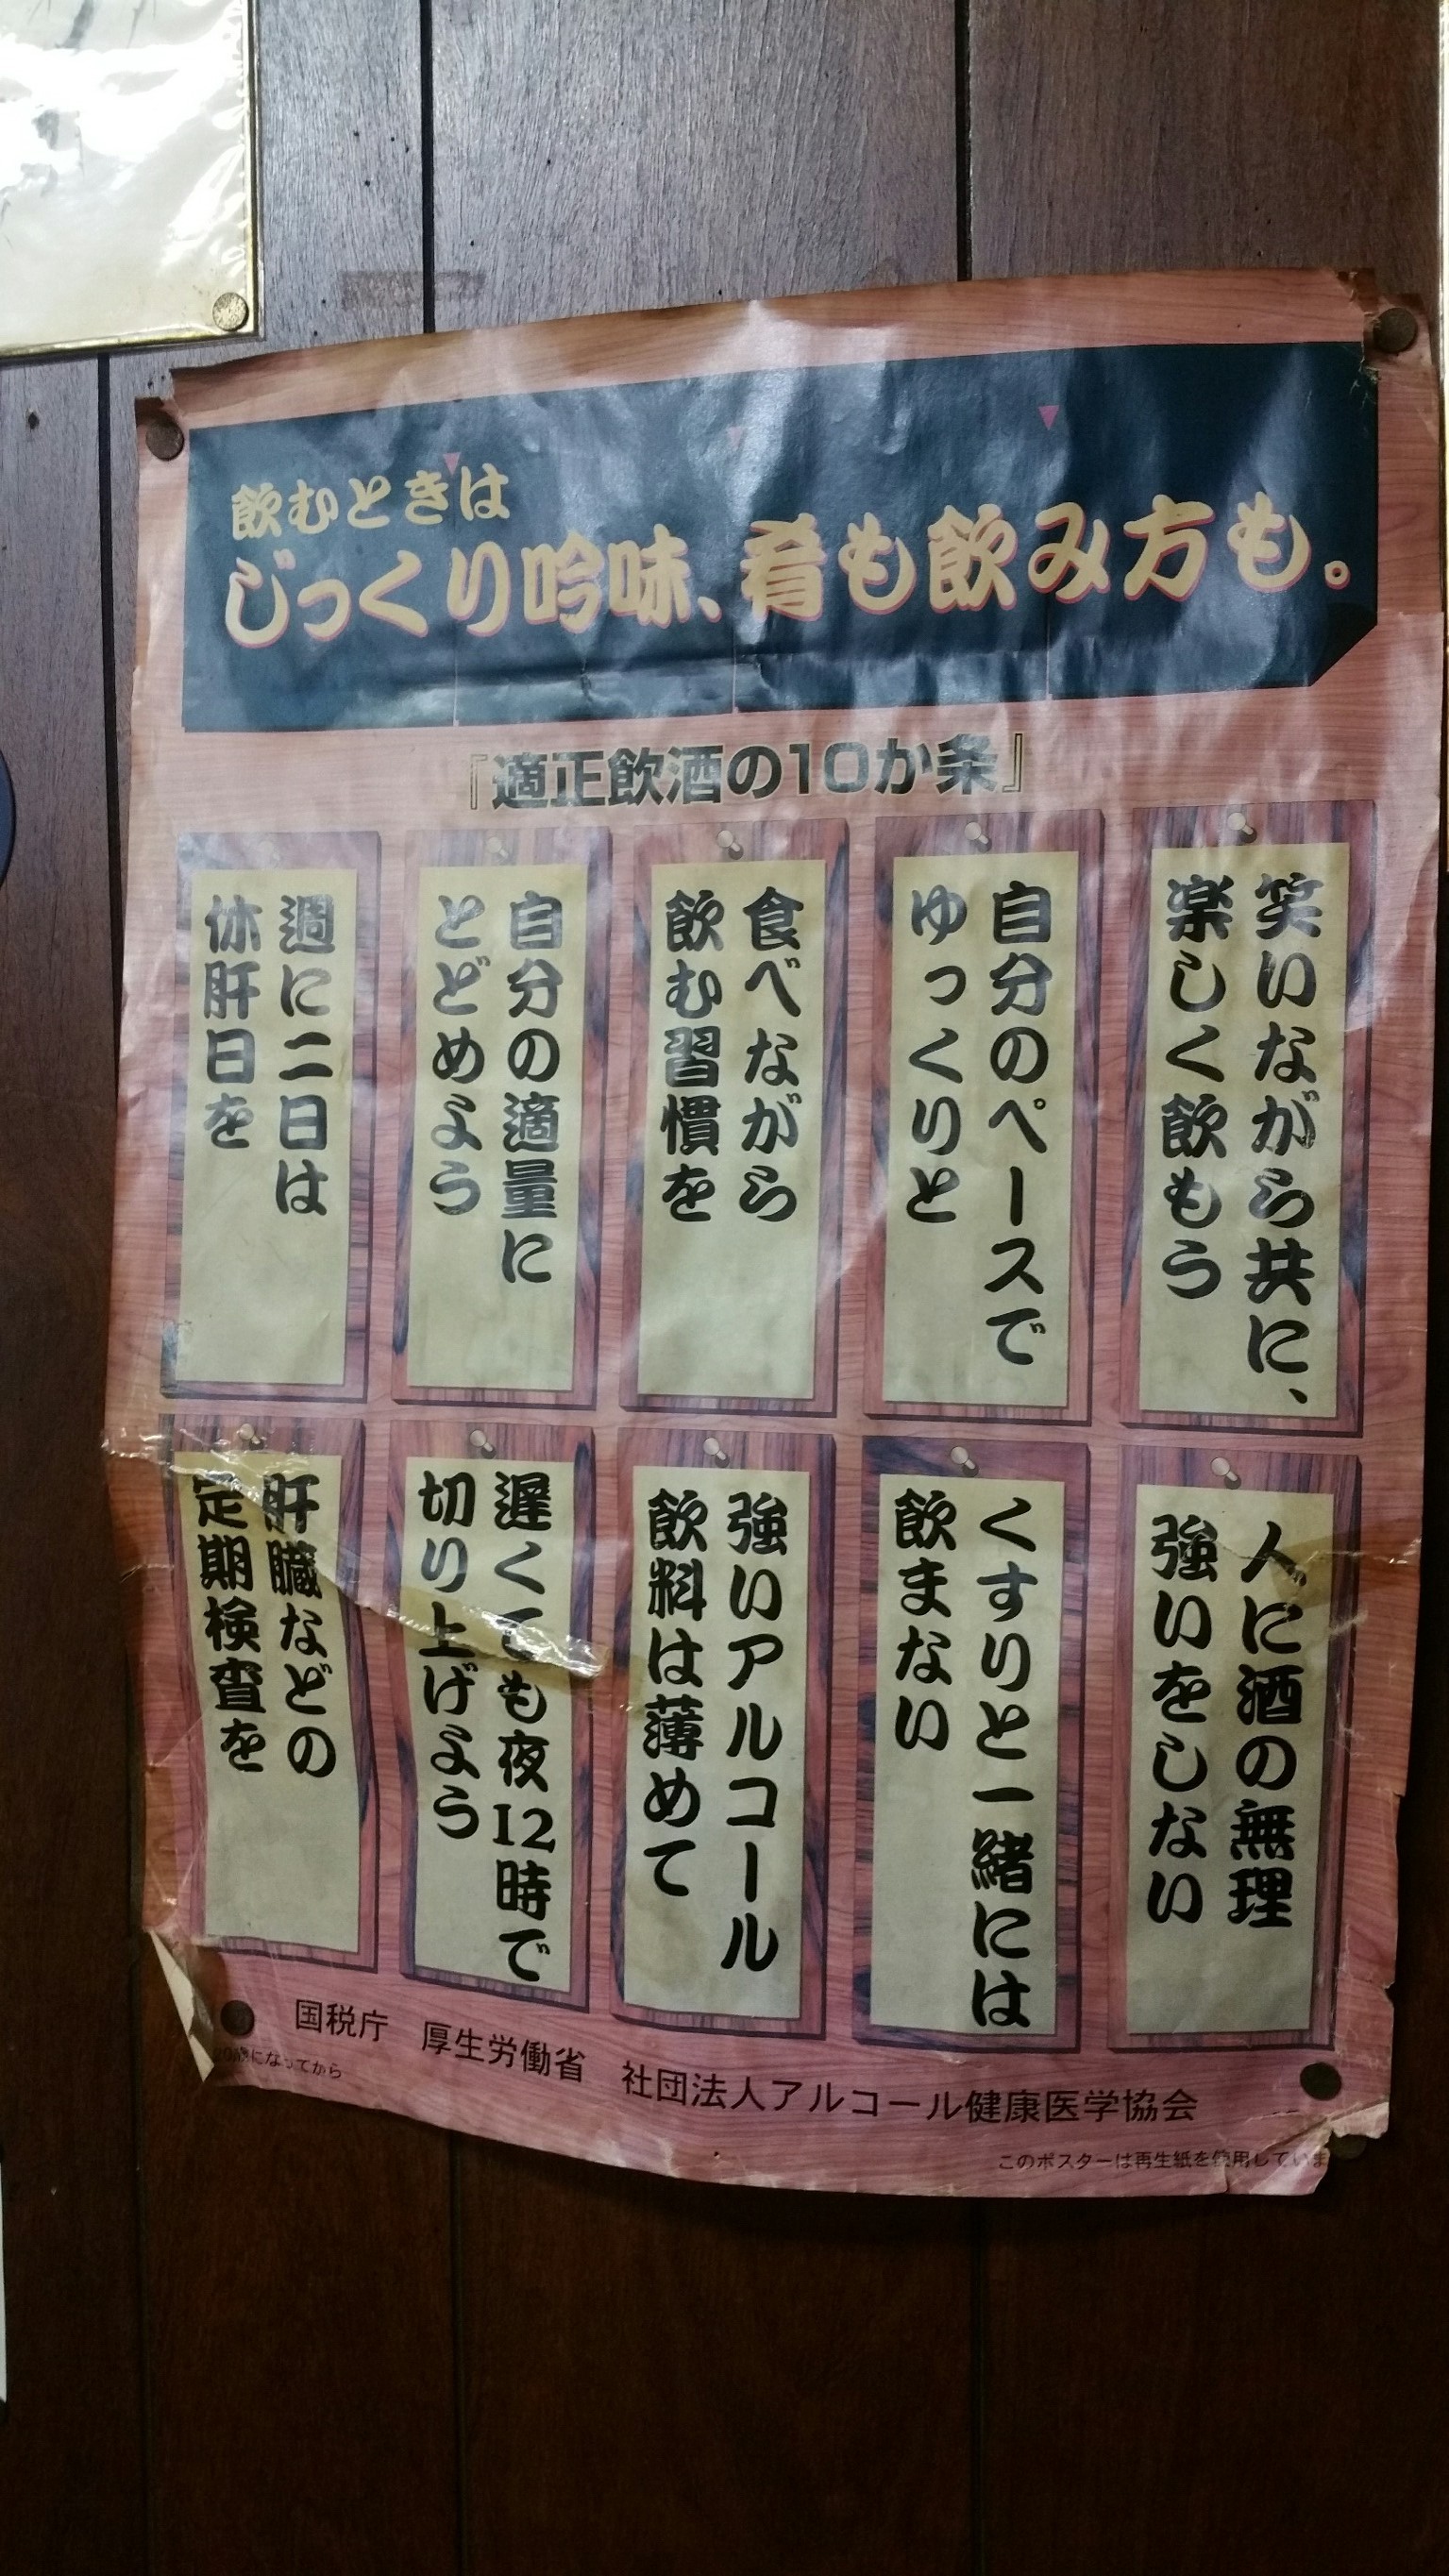 飲むときは
じっくり吟味、肴も飲み方も。
『適正飲酒の10か条』
笑いながら共に、
楽しく飲もう
自分のペースで
ゆっくりと
食べながら
飲む習慣を
自分の適量に
とどめよう
週に二日は
休肝日を
人に酒の無理
強いをしない
くすりと一緒には
飲まない
強いアルコール
飲料は薄めて
遅くても夜12時で
切り上げよう
肝臓などの
定期検査を
国税庁 厚生労働省 社団法人アルコール健康医学協会
になってから
このポスターは再生紙を使用していま